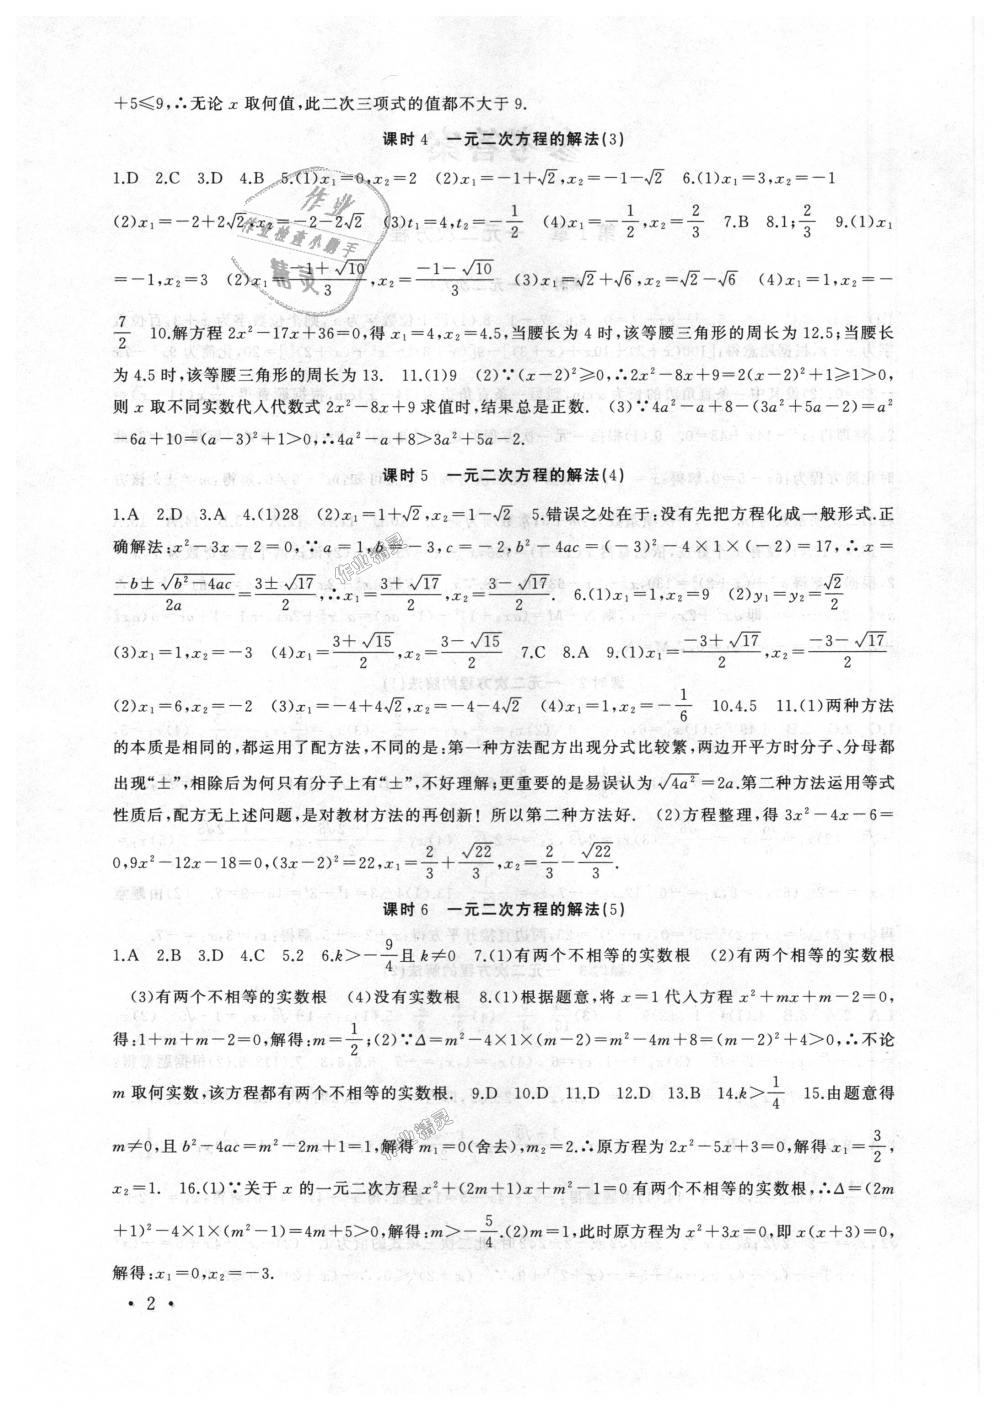 +5≤9,∴无论 x 取何值,此二次三项式的值都不大于 9.
课时 4 一元二次方程的解法(3)
1.D 2.C 3.D 4.B 5.(1)x₁=0,x₂=2 (2)x₁=-1+√2,x₂=-1-√2 6.(1)x₁=3,x₂=-1
(2)x₁=-2+2√2,x₂=-2-2√2 (3)t₁=4,t₂=-1/2 (4)x₁=-1/2,x₂=2/3 7.B 8.1;2/3 9.(1)x₁
=-1,x₂=3 (2)x₁=(-1+√10)/3,x₂=(-1-√10)/3 (3)x₁=√2+√6,x₂=√2-√6 (4)x₁=1,x₂=-
7/2 10.解方程 2x²-17x+36=0,得 x₁=4,x₂=4.5,当腰长为 4 时,该等腰三角形的周长为 12.5;当腰长
为 4.5 时,该等腰三角形的周长为 13. 11.(1)9 (2)∵(x-2)²≥0,∴2x²-8x+9=2(x-2)²+1≥1>0,
则 x 取不同实数代入代数式 2x²-8x+9 求值时,结果总是正数. (3)∵4a²-a+8-(3a²+5a-2)=a²
-6a+10=(a-3)²+1>0,∴4a²-a+8>3a²+5a-2.
课时 5 一元二次方程的解法(4)
1.A 2.D 3.A 4.(1)28 (2)x₁=1+√2,x₂=1-√2 5.错误之处在于:没有先把方程化成一般形式.正
确解法:x²-3x-2=0,∵a=1,b=-3,c=-2,b²-4ac=(-3)²-4×1×(-2)=17,∴x=
(-b±√(b²-4ac))/2a=(3±√17)/2,∴x₁=(3+√17)/2,x₂=(3-√17)/2. 6.(1)x₁=1,x₂=9 (2)y₁=y₂=√2/2
(3)x₁=1,x₂=-3 (4)x₁=(3+√15)/2,x₂=(3-√15)/2 7.C 8.A 9.(1)x₁=(-3+√17)/2,x₂=(-3-√17)/2
(2)x₁=6,x₂=-2 (3)x₁=-4+4√2,x₂=-4-4√2 (4)x₁=1,x₂=-1/6 10.4.5 11.(1)两种方法
的本质是相同的,都运用了配方法,不同的是:第一种方法配方出现分式比较繁,两边开平方时分子、分母都
出现“±”,相除后为何只有分子上有“±”,不好理解;更重要的是易误认为√(4a²)=2a.第二种方法运用等式
性质后,配方无上述问题,是对教材方法的再创新!所以第二种方法好. (2)方程整理,得 3x²-4x-6=
0,9x²-12x-18=0,(3x-2)²=22,x₁=2/3+√22/3,x₂=2/3-√22/3.
课时 6 一元二次方程的解法(5)
1.A 2.B 3.D 4.C 5.2 6.k>-9/4且 k≠0 7.(1)有两个不相等的实数根 (2)有两个不相等的实数根
(3)有两个不相等的实数根 (4)没有实数根 8.(1)根据题意,将 x=1 代入方程 x²+mx+m-2=0,
得:1+m+m-2=0,解得:m=1/2;(2)∵Δ=m²-4×1×(m-2)=m²-4m+8=(m-2)²+4>0,∴不论
m 取何实数,该方程都有两个不相等的实数根. 9.D 10.D 11.D 12.D 13.B 14.k>1/4 15.由题意得
m≠0,且 b²-4ac=m²-2m+1=1,解得 m₁=0(舍去),m₂=2.∴原方程为 2x²-5x+3=0,解得 x₁=3/2,
x₂=1. 16.(1)∵关于 x 的一元二次方程 x²+(2m+1)x+m²-1=0 有两个不相等的实数根,∴Δ=(2m
+1)²-4×1×(m²-1)=4m+5>0,解得:m>-5/4.(2)m=1,此时原方程为 x²+3x=0,即 x(x+3)=0,
解得:x₁=0,x₂=-3.
• 2 •
作业
作业检查小助手
精灵
作业精灵
作业精灵